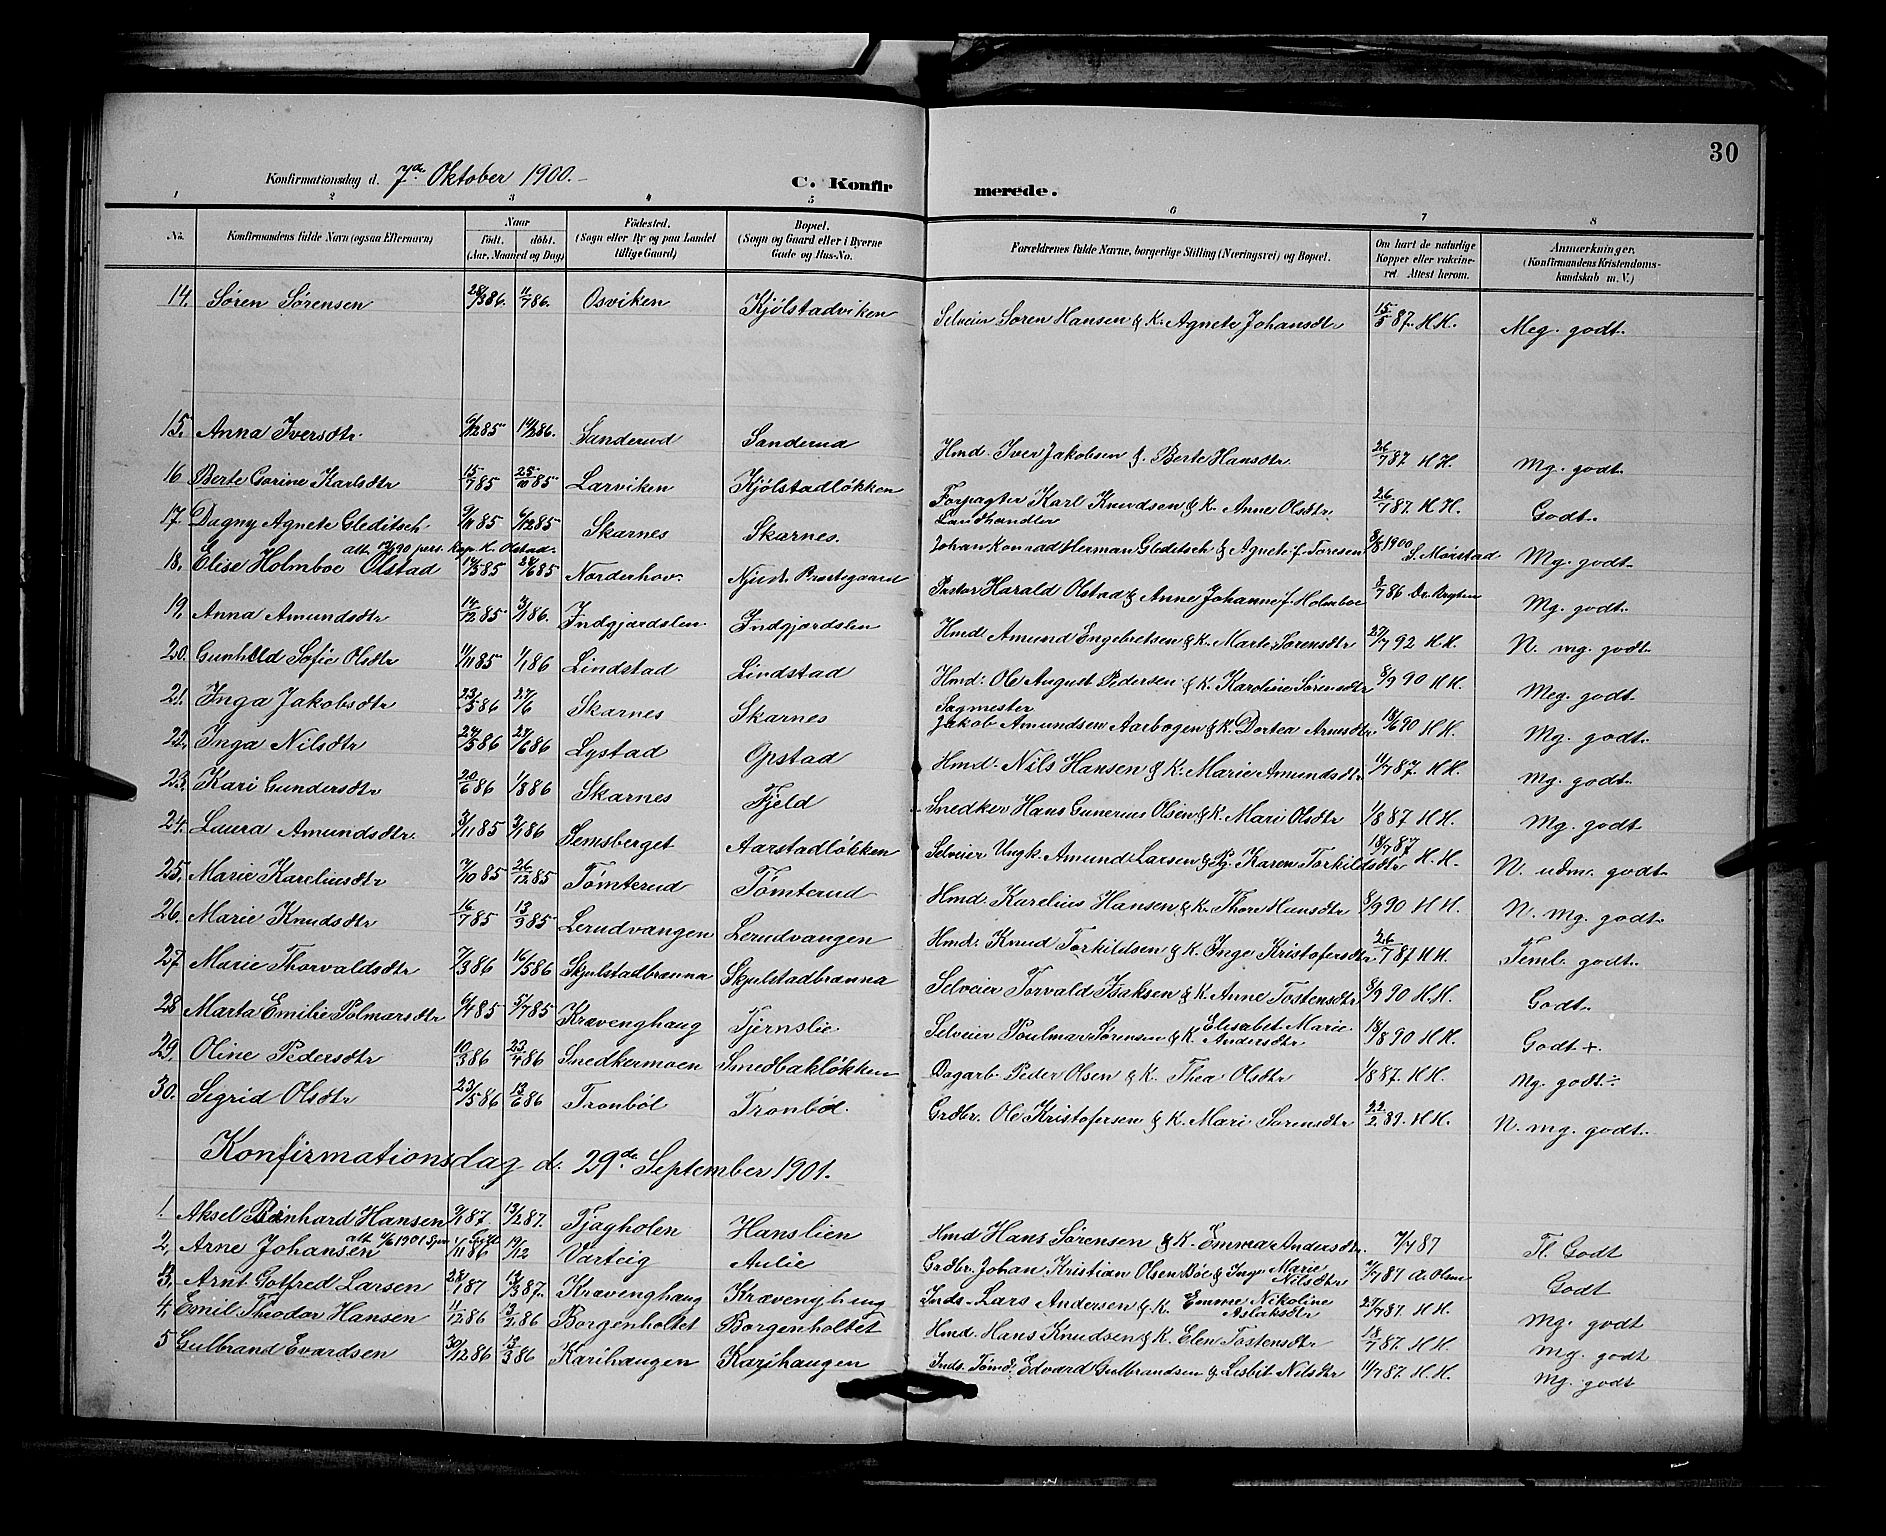 30
Konfirmationsdag d. 7de Oktober 1900.
C. Konfirmerede.
1 2 3 4 5 6 7 8
No. Konfirmandens fulde Navn (ogsaa Efternavn) Naar Født. døbt. (Aar, Maaned og Dag) Fødested. (Sogn eller By og paa Landet tillige Gaard) Bopæl. (Sogn og Gaard eller i Byerne Gade og Hus-No. Forældrenes fulde Navne, borgerlige Stilling (Næringsvei) og Bopæl. Om havt de naturlige Kopper eller vakcineret. Attest herom. Anmærkninger. (Konfirmandens Kristendomskundskab m. V.)
14. Søren Sørensen 28/3 86. 11/7 86. Osviken Kjølstadviken Selveier Søren Hansen & K. Agnete Johansdtr 15/5 87. H.H. Meg. godt.
15. Anna Iversdtr. 6/12 85 14/2 86. Sanderud Sanderud Hmd. Iver Jakobsen & Berte Hansdtr. 26/7 87 H.H. Mg. godt.
16 Berte Gorine Karlsdtr 15/7 85 25/10 85 Larviken Kjølstadløkken Forpagter Karl Knudsen & K. Anne Olsdtr 26/7 87. H.H. Godt.
17. Dagny Agnete Gleditsch 9/11 85 6/12 85 Skarnes Skarnes. Landhandler Johan Konrad Herman Gleditsch & Agnete f. Toresen 3/8 1900 S. Mørstad Mg. godt.
18. Elise Holmboe Olstad 14/5 85 24/6 85 Norderhov. Prestegaard Pastor Harald Olstad & Anne Johanne f. Holmboe 3/7 86 Mg. godt.
19. Anna Amundsdtr 14/12 85 3/1 86. Indgjærdslen Indgjordslen Hmd Amund Engebretsen & K. Marte Sørensdtr 27/7 92 H.H. N. mg. godt.
20. Gunhild Sofie Olsdtr 11/11 85 1/1 86 Lindstad Lindstad Hmd: Ole August Pedersen & K. Karoline Sørensdtr 8/9 90 H.H. Meg. godt.
21. Inga Jakobsdtr 23/5 86 27/6 Skarnes Skarnes Sagmester Jakob Amundsen Aarbogen & K. Dortea Arnesdtr. 18/6 90 H.H. Mg. godt.
22. Inga Nilsdtr 24/5 86 27/6 86 Lystad Opstad Hmd. Nils Hansen & K. Marie Amundsdtr 11/7 87. H.H. Mg. godt.
23. Kari Gundersdtr 20/6 86 1/8 86 Skarnes Fjeld Snedker Hans Gunerius Olsen & K. Mari Olsdtr 1/8 87 H.H. Mg. godt
24. Laura Amundsdtr. 3/11 85 3/1 86 Semsberget Aarstadløkken Selveier Ungk. Amund Larsen & Pg. Karen Torkildsdtr 18/7 87 H.H. N. udm. godt.
25. Marie Kareliusdtr 7/10 85 26/12 85 Tømterud Tømterud Hmd. Karelius Hansen & K. Thon Hansdtr 8/9 90 H.H. N. mg. godt.
26. Marie Knudsdtr 16/7 85 13/9 85 Lerudvangen Lerudvangen Hmd: Knud Torkildsen & K. Inge Kristofersdtr. 26/7 87 H.H. Teml. godt.
27. Marie Thorvaldsdtr 7/3 86 16/5 86 Skjulstadbrænna Skjulstadbrænna Selveier Torvald Isaksen & K. Anne Tostensdtr 8/9 90 H.H. Godt.
28 Marta Emilie Polmarsdtr 6/4 85 5/7 85 Kravenghaug Tjernslie Selveier Poulmar Sørensen & K. Elisabet Marie Andersdtr 18/8 90 H.H. Godt +.
29. Oline Pedersdtr 10/3 86 23/4 86 Snedkermoen Smedbakløkken Dagarb. Peder Olsen & K. Thea Olsdtr 1/8 87. H.H. Mg. godt ÷
30. Sigrid Olsdtr 23/5 86 13/6 86 Tronbøl Tronbøl. Grdbr. Ole Kristofersen & K. Mari Sørensdtr 22/2 89. H.H. N. mg. godt.
Konfirmationsdag d. 29de September 1901.
1. Aksel Hansen 9/1 87. 13/2 87. Tjagholen Hanslien Hmd Hans Sørensen & K. Emma Andersdtr. 7/7 87 Tl. Godt
2. Arne Johansen 1/11 86 19/12 Varteig Aulie Grdbr. Johan Kristian Olsen Bøe & Inge Marie Nilsdtr 7/7 87 A. Olsen Godt
3. Arnt Gotfred Larsen 28/1 87 13/3 87. Kravenghaug Kravenghaug Inds. Lars Andersen & K. Emma Nikoline Aslaksdtr 27/7 87. H.H. Mg. godt
4. Emil Theodor Hansen 11/12 86 13/2 86 Borgenholtet Borgenholtet Hmd. Hans Knudsen & K. Elen Tostensdtr 18/7 87. H.H. Mg. godt
5 Gulbrand Evardsen 30/12 86 13/3 86 Karihaugen Karihaugen Inds. Tømd. Edvard Gulbrandsen & Lisbit Nilsdtr 11/7 87. H.H. Mg. godt